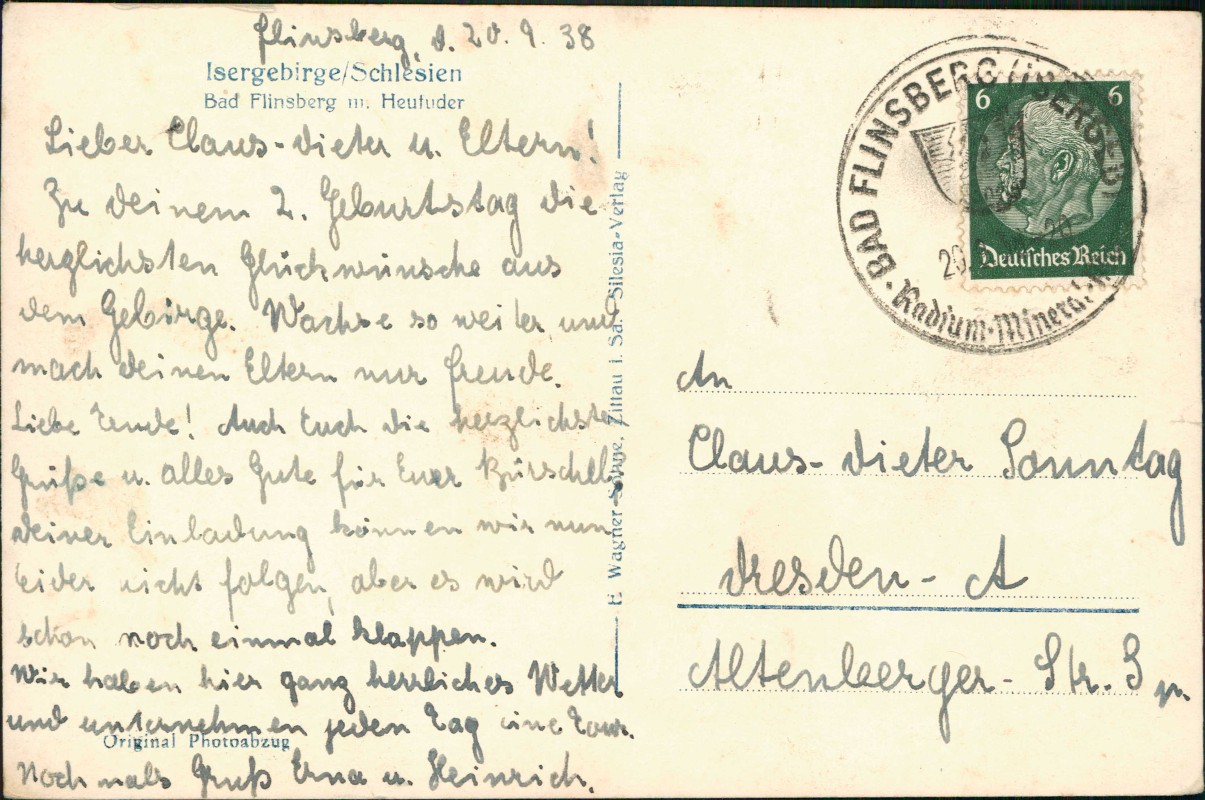 Flinsberg, d. 20.9.38
Isergebirge/Schlesien
Bad Flinsberg m. Heufuder
Lieber Claus-Dieter u. Eltern!
Zu deinem 2. Geburtstag die
herzlichsten Glückwünsche aus
dem Gebirge. Wachse so weiter und
mach deinen Eltern nur Freude.
Liebe Trude! Auch Euch die herzlichsten
Grüße u. alles Gute für Euer Bürschel.
Deiner Einladung können wir nun
leider nicht folgen, aber es wird
schon noch einmal klappen.
Wir haben hier ganz herrliches Wetter
und unternehmen jeden Tag eine Tour.
Original Photoabzug
Nochmals Gruß Erna u. Heinrich.
E. Wagner Söhne, Zittau i. Sa. Silesia-Verlag
BAD FLINSBERG (ISERGEB)
20
20
Radium-Mineral
6 6
Deutsches Reich
An
Claus-Dieter Sonntag
Dresden-A
Altenberger-Str. 3